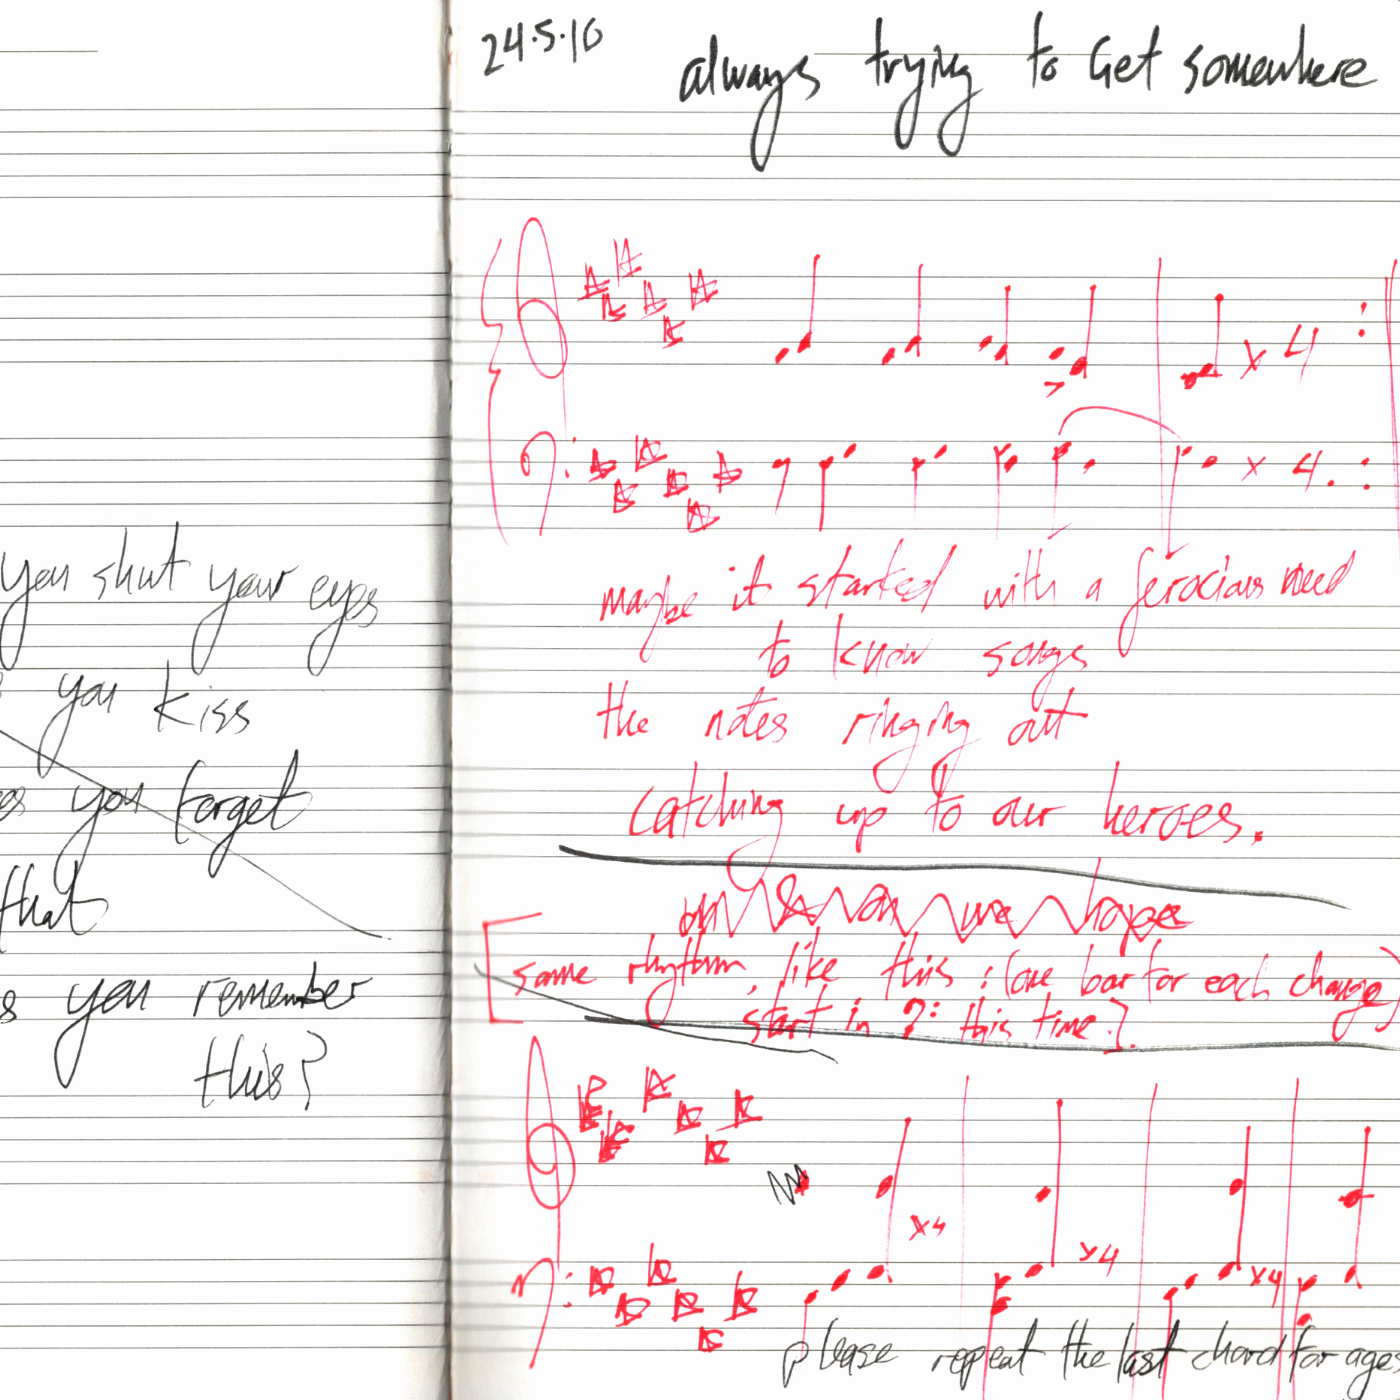 you shut your eyes
you kiss
you forget
that
you remember
this?
24.5.10
always trying to Get somewhere
x 4
x 4.
maybe it started with a ferocious need
to know songs
the notes ringing out
catching up to our heroes.
on & on we hope
[same rhythm, like this : (one bar for each change)
start in ?: this time.].
x4
x4
x4
please repeat the last chord for ages